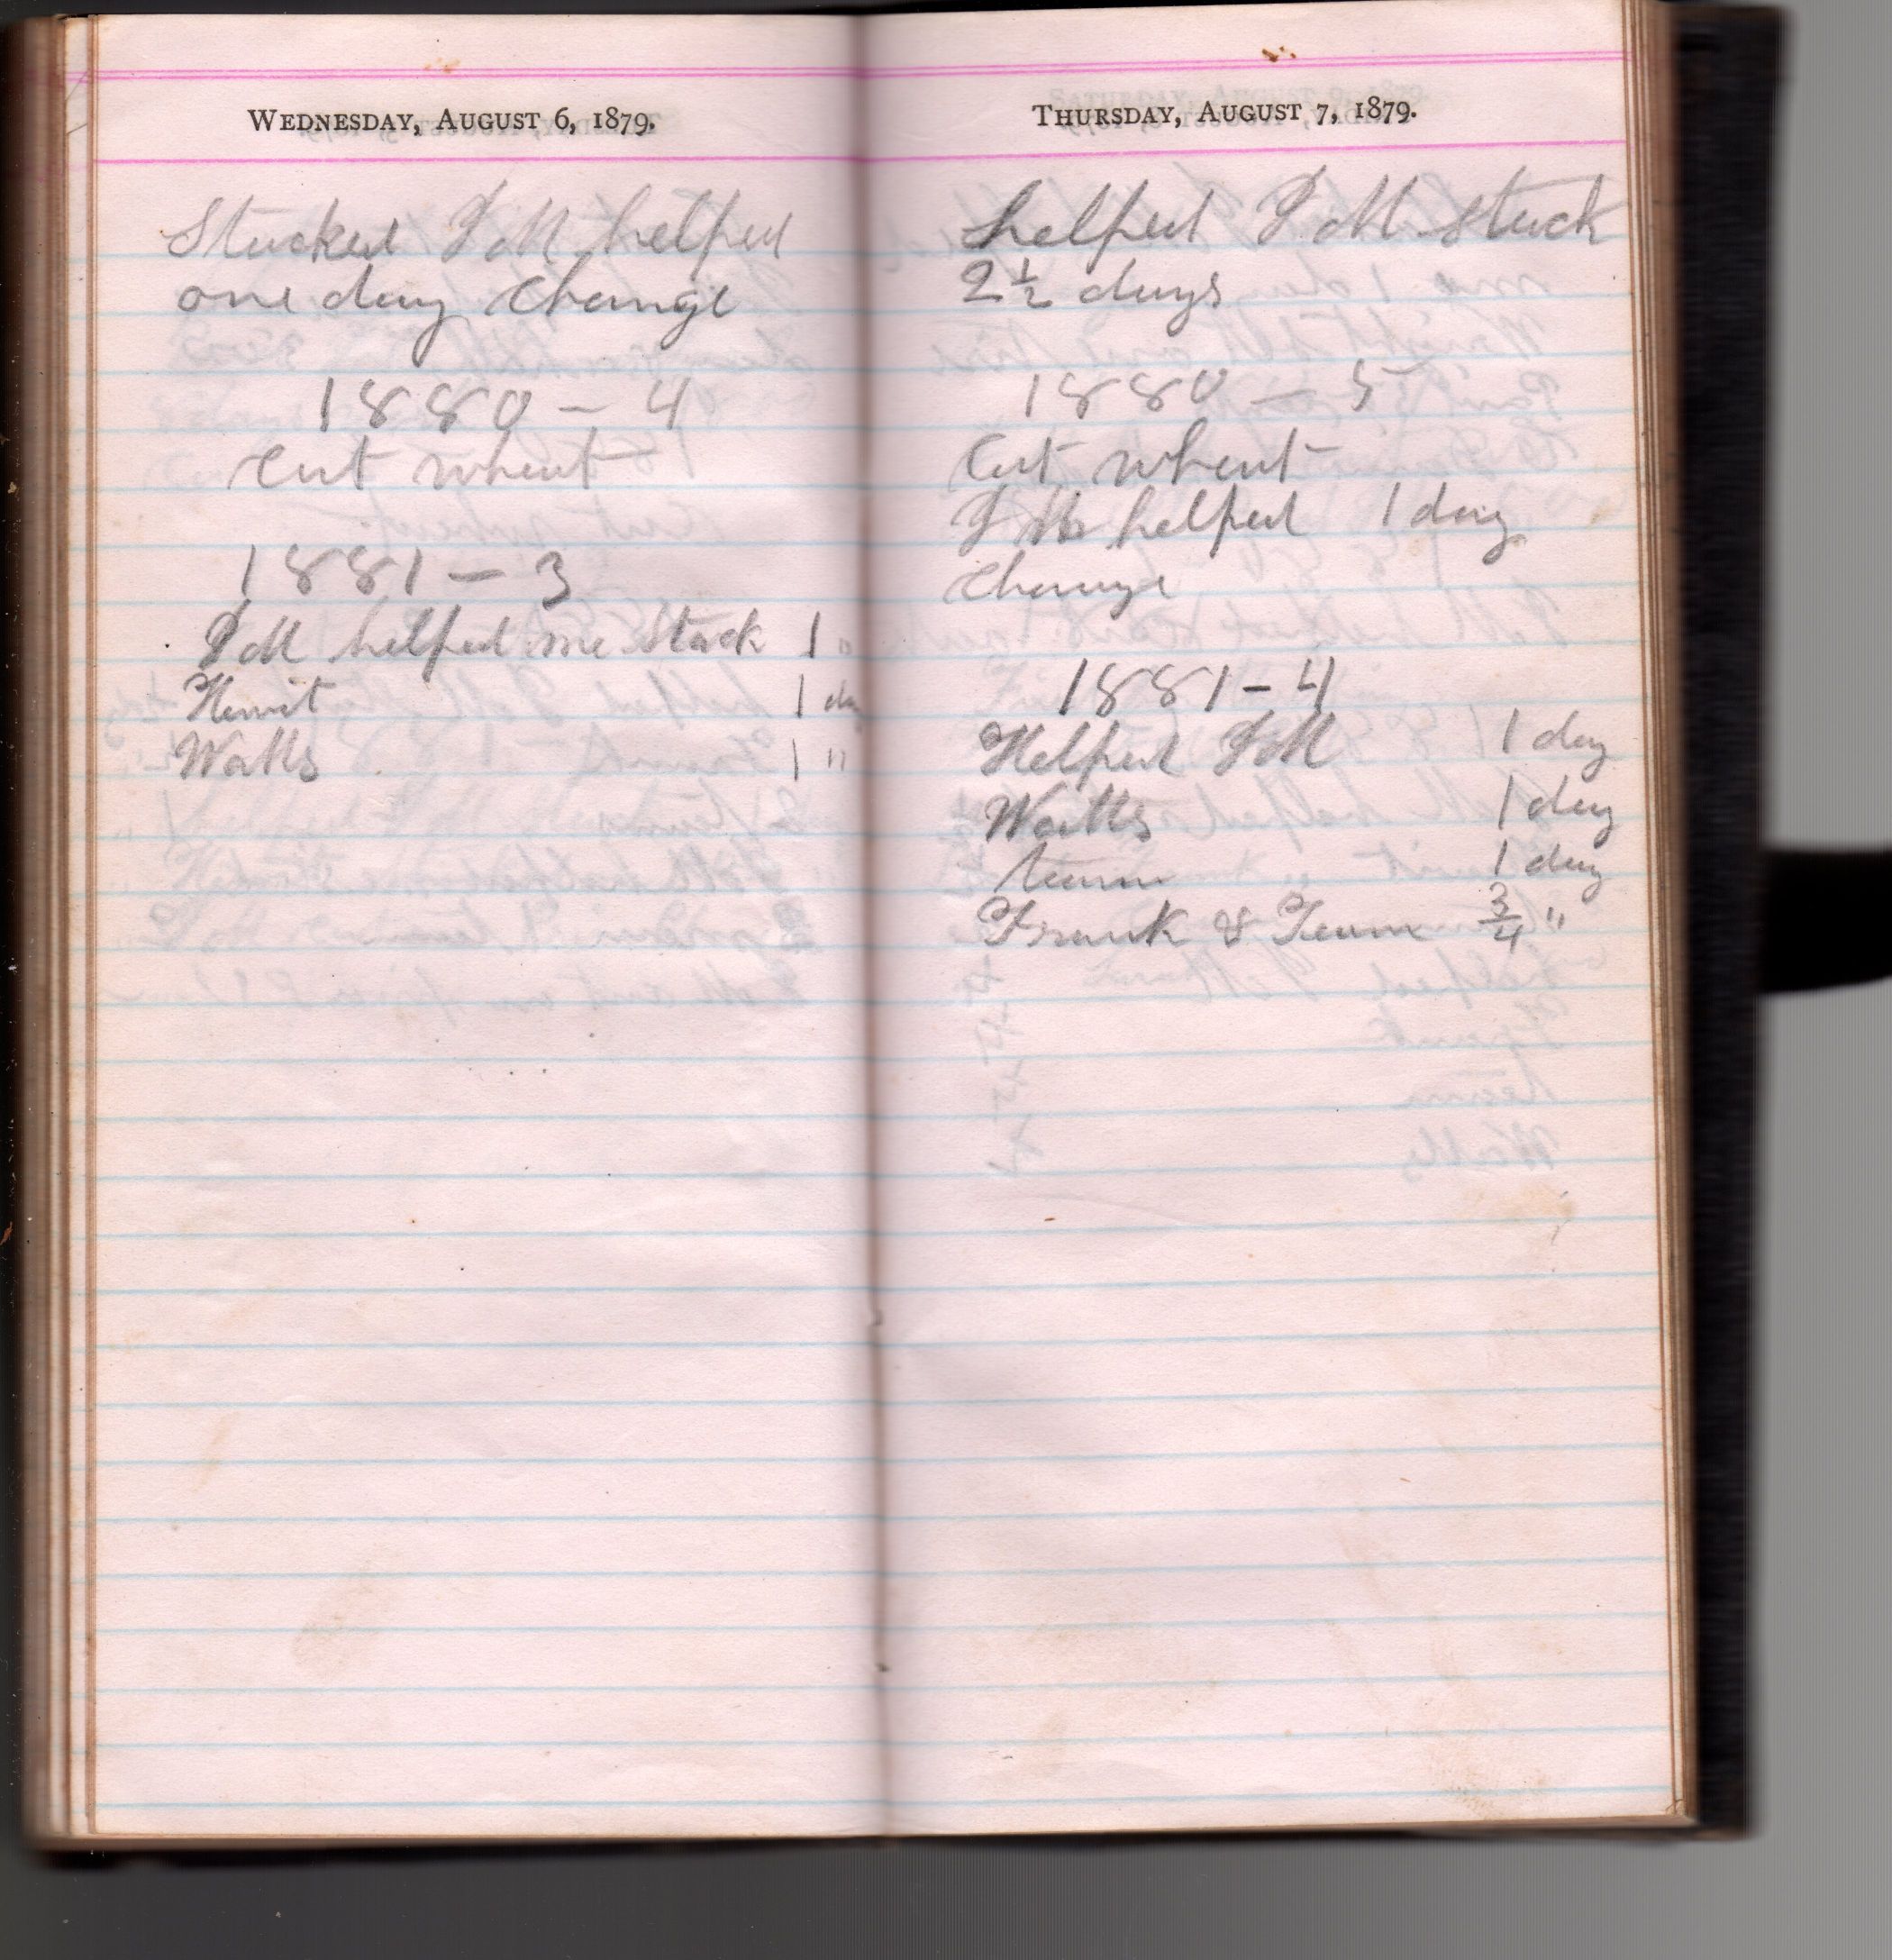 WEDNESDAY, AUGUST 6, 1879.
Stacked I M helped
one day change
1880 – 4
Cut wheat
1881 – 3
I M helped me Stack 1 "
Hewit 1 day
Watts 1 "
THURSDAY, AUGUST 7, 1879.
helped I M stack
2 1/2 days
1880 – 5
Cut wheat
I M helped 1 day
change
1881 – 4
Helped I M 1 day
Watts 1 day
team 1 day
Frank & Team 3/4 "